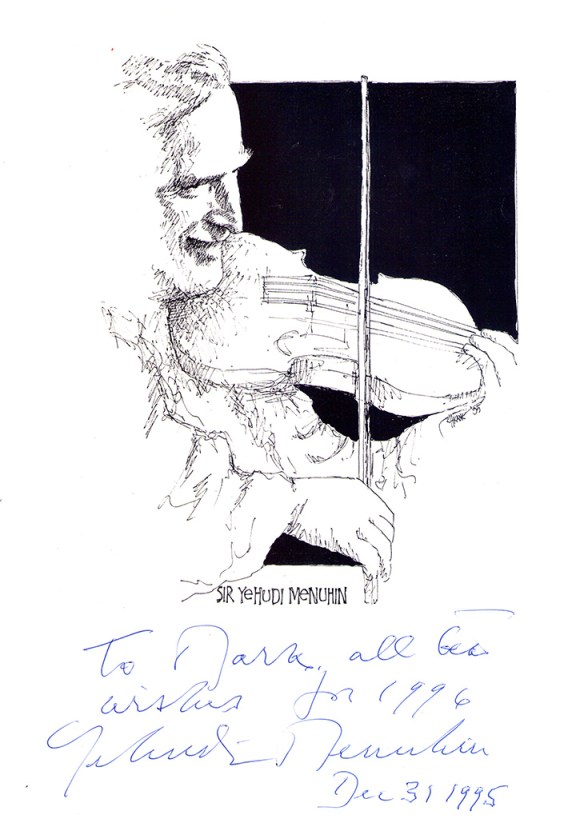 SIR YEHUDI MENUHIN
To Mark, all best
wishes for 1996
Yehudi Menuhin
Dec 31 1995